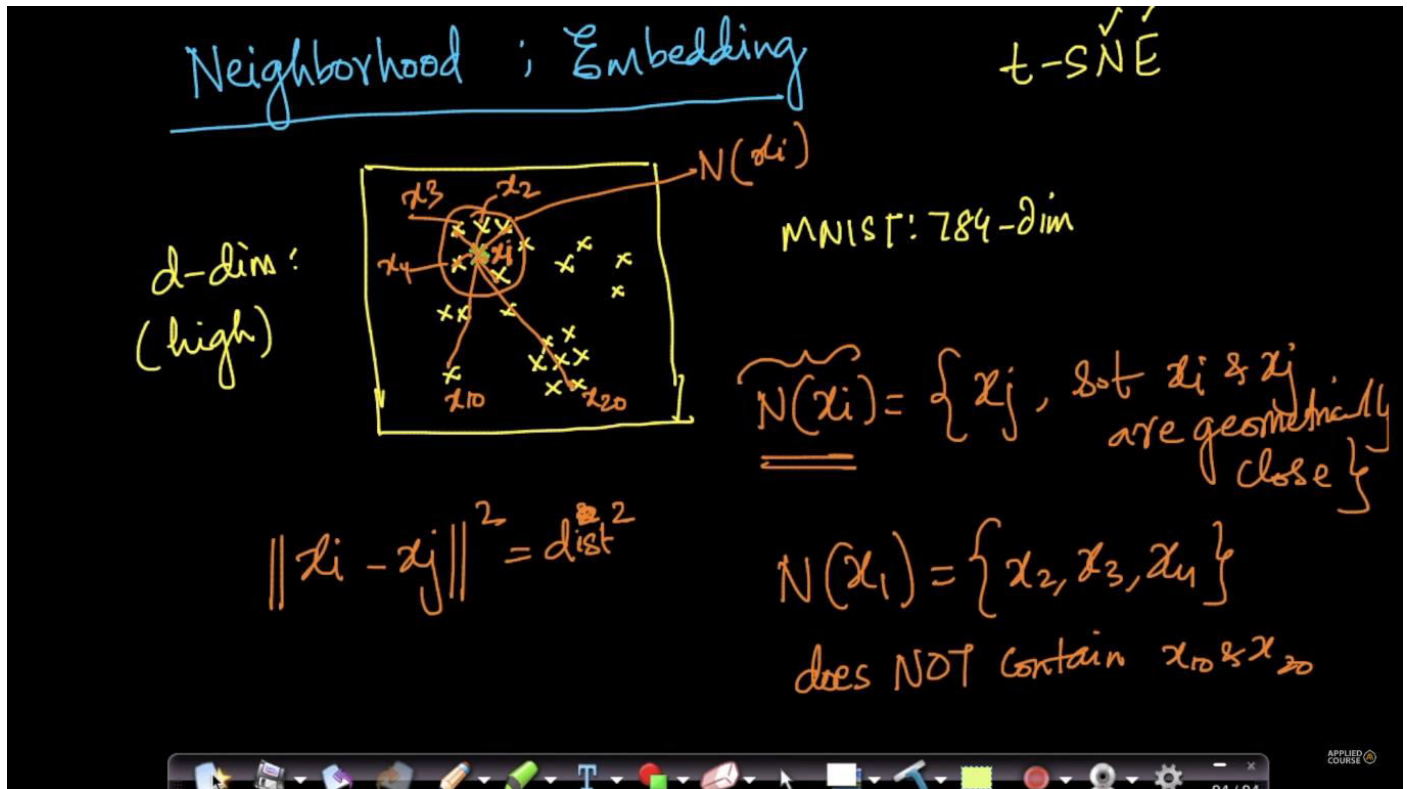 Neighborhood ; Embedding
t-SNE
N(xi)
x3
x2
x4
xj
x10
x20
d-dim:
(high)
MNIST: 784-dim
N(xi) = { xj, s.t xi & xj
are geometrically
close }
||xi - xj||² = dist²
N(x₁) = {x₂, x₃, x₄}
does NOT contain x₁₀ & x₂₀
APPLIED
COURSE